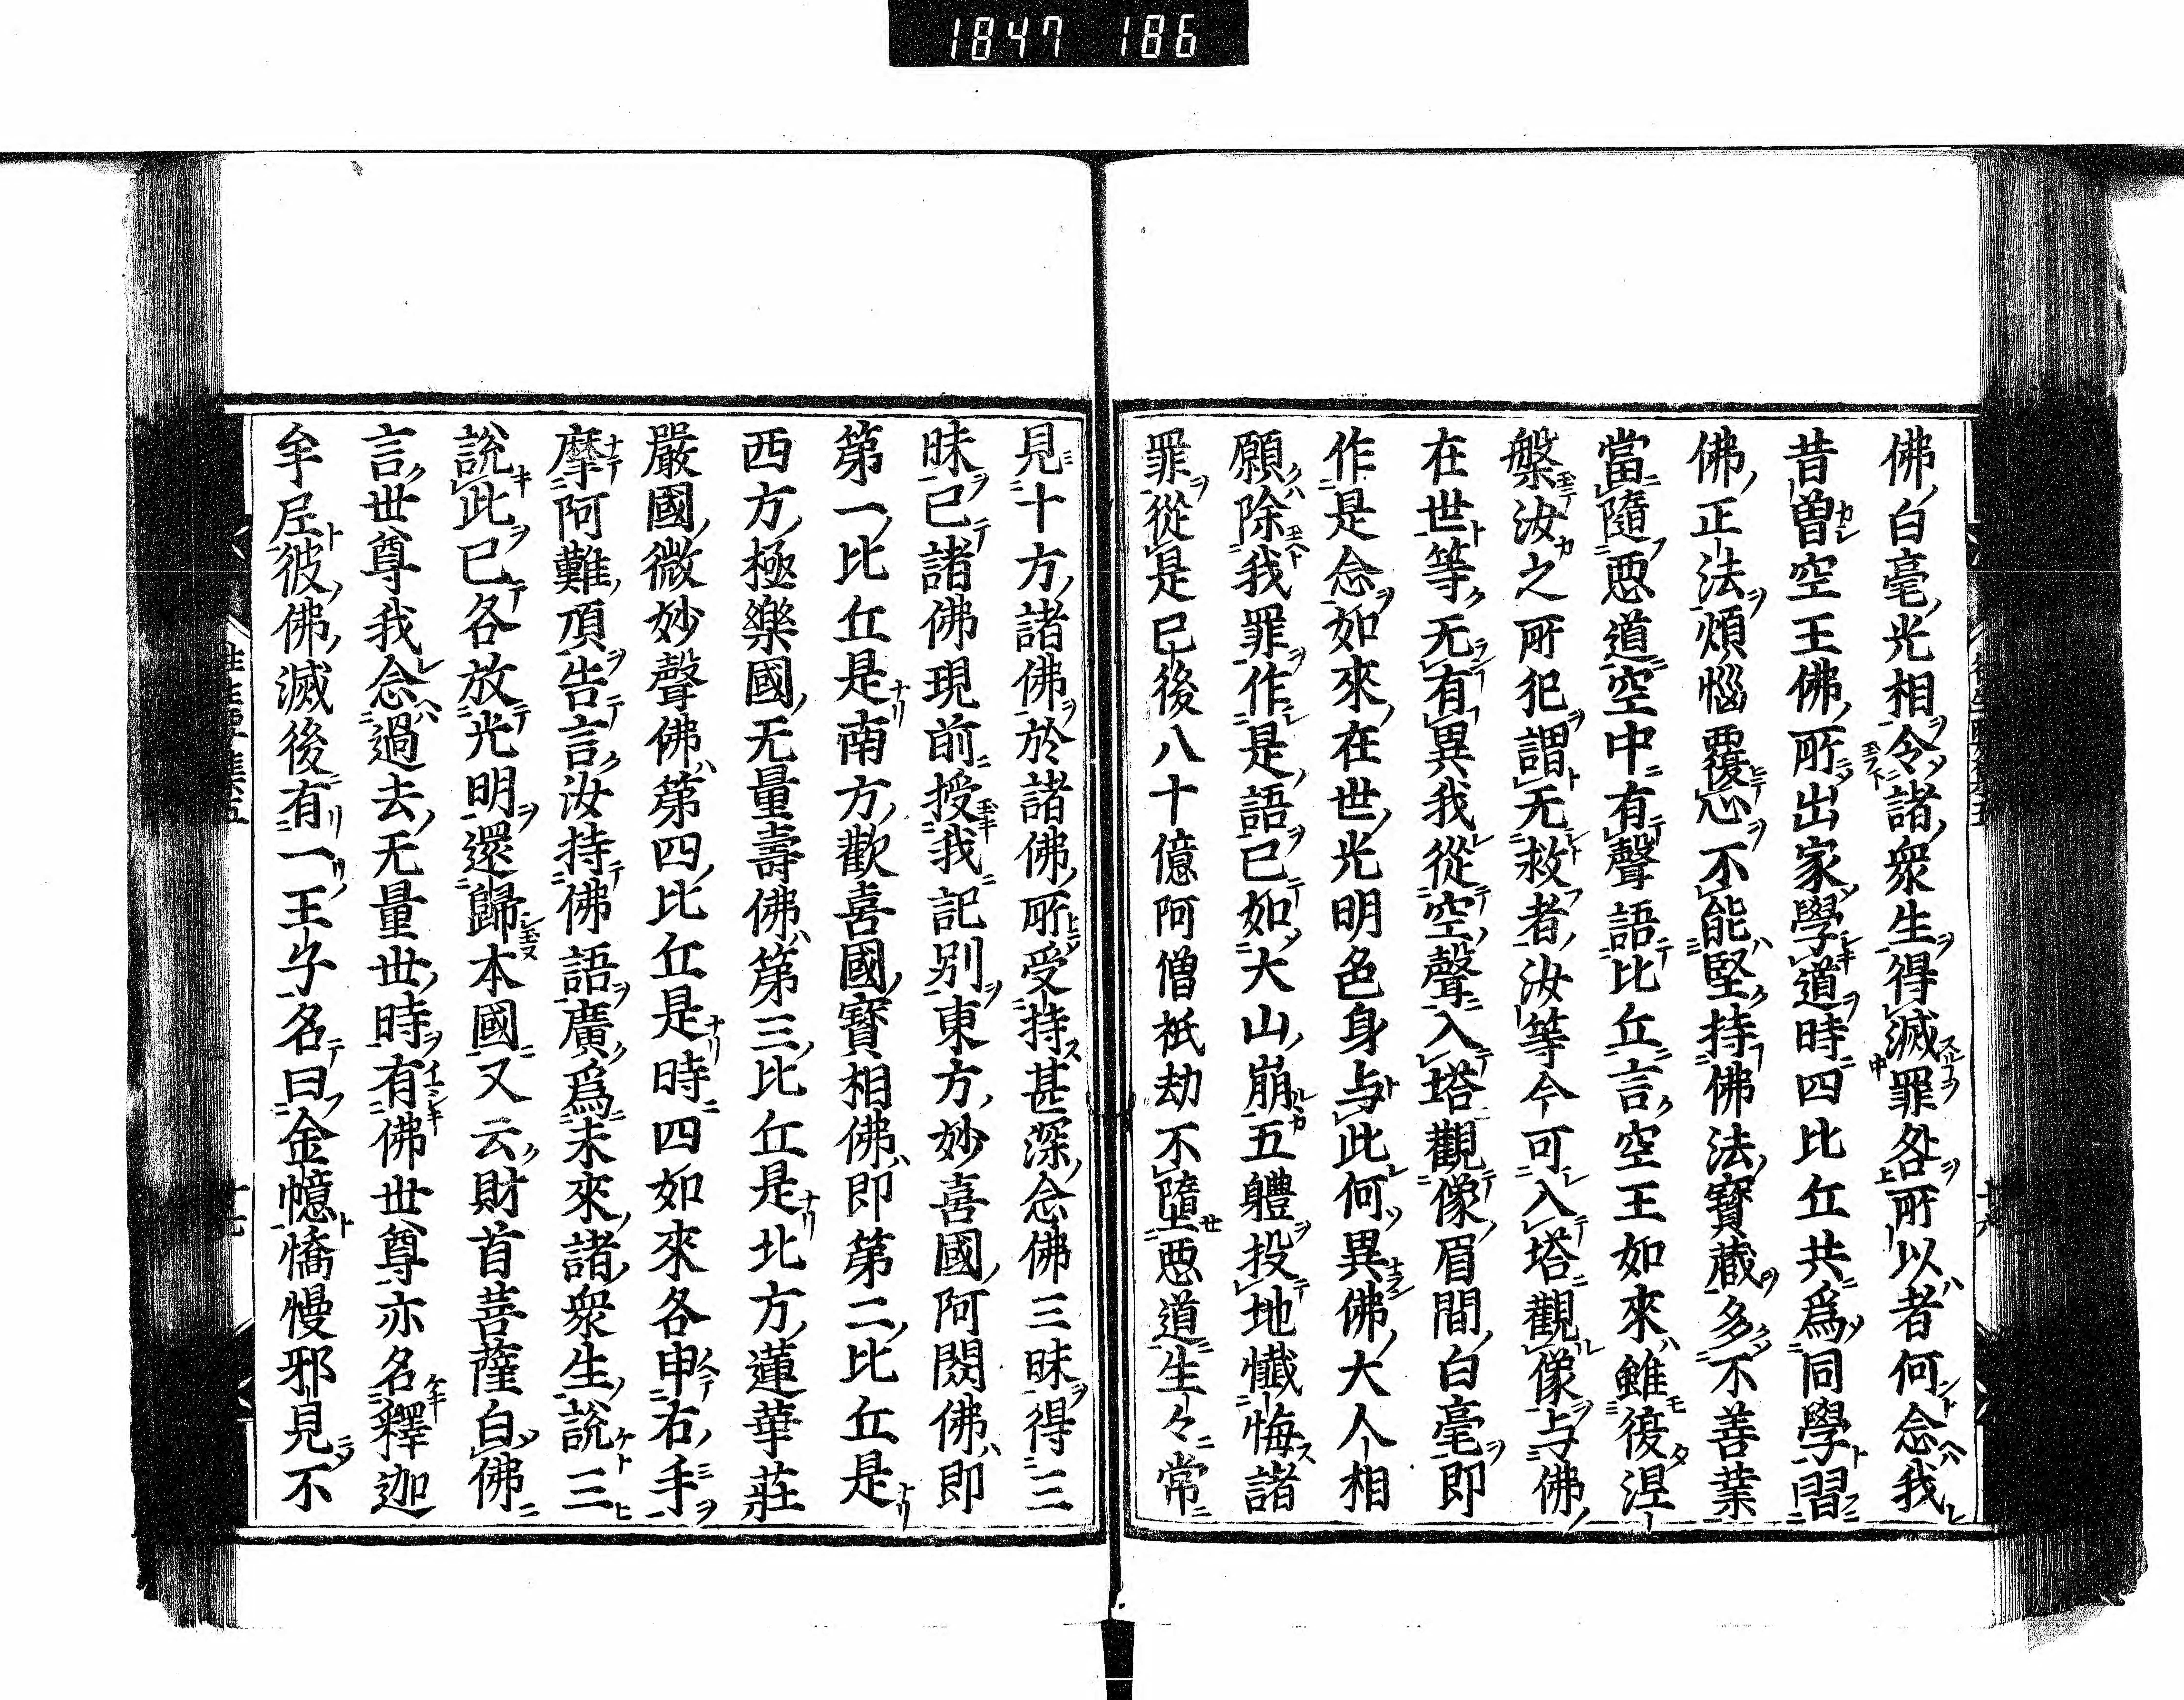 1847 186
佛白毫光相令諸衆生得滅罪咎所以者何念我
昔曽空王佛所出家學道時四比丘共爲同學習
佛正法煩惱覆心不能堅持佛法寳蔵多不善業
當隨悪道空中有聲語比丘言空王如來雖復涅
槃汝之所犯謂无救者汝等今可入塔觀像与佛
在世等无有異我從空聲入塔觀像眉間白毫即
作是念如來在世光明色身与此何異佛大人相
願除我罪作是語已如大山崩五體投地懺悔諸
罪從是已後八十億阿僧祇劫不墮悪道生々常
見十方諸佛於諸佛所受持甚深念佛三昧得三
昧已諸佛現前授我記別東方妙喜國阿閦佛即
第一比丘是南方歡喜國寳相佛即第二比丘是
西方極樂國无量壽佛第三比丘是北方蓮華莊
嚴國微妙聲佛第四比丘是時四如來各申右手
摩阿難頂告言汝持佛語廣爲未來諸衆生說三
說此已各放光明還歸本國又云財首菩薩白佛
言世尊我念過去无量世時有佛世尊亦名釋迦
牟尼彼佛滅後有一王子名曰金幢憍慢邪見不